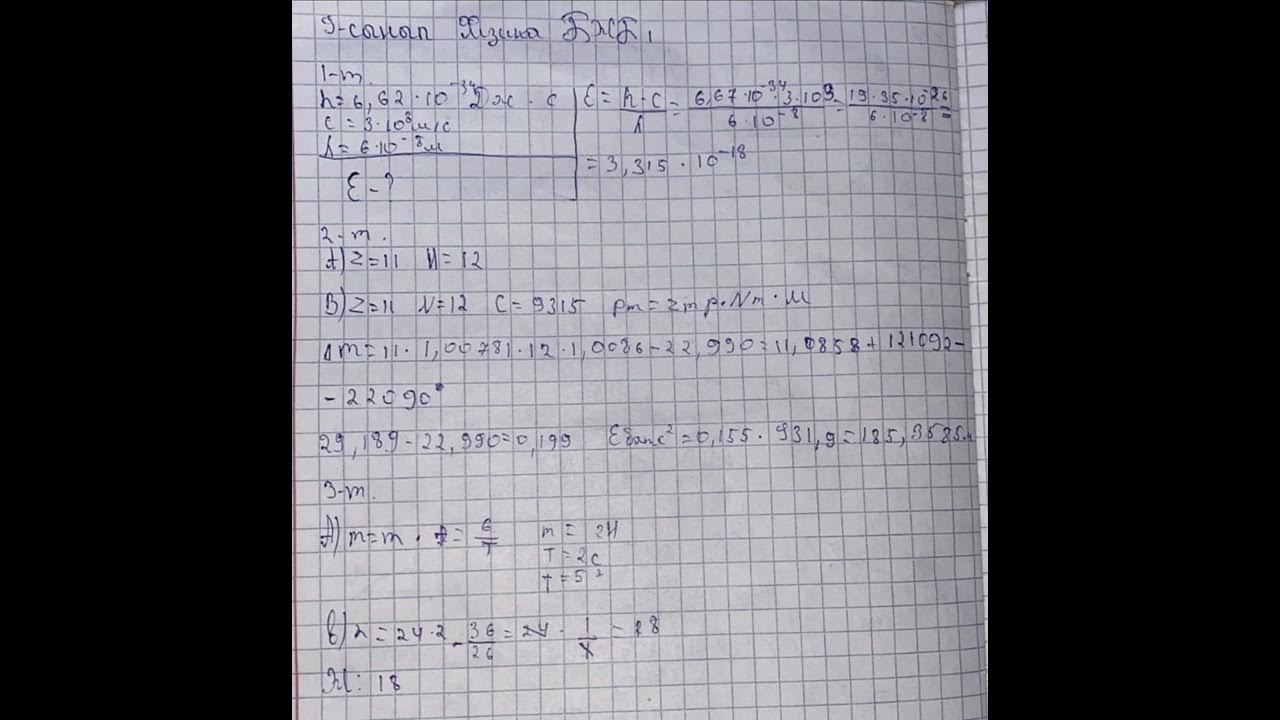 9-сынып Физика БЖБ1
1-т.
h=6,62·10⁻³⁴Дж·с
c=3·10⁸м/с
λ=6·10⁻⁸м
ε-?
ε=h·c/λ=6,67·10⁻³⁴·3·10⁹/6·10⁻⁸=19·35·10²⁶/6·10⁻⁸=
=3,315·10⁻¹⁸
2-т.
A)Z=11 N=12
B)Z=11 N=12 C=9315 pm=zmp·Nm·M
Δm=11·1,00781·12·1,0086-22,990=11,0858+121092-
-22090
29,189-22,990=0,199 c²=0,155·931,9=185,3585
3-т.
A)m=m· =6/T m=24
T=2c
T=5
B) =24·2-36/26=24·1/ =18
Ж: 18